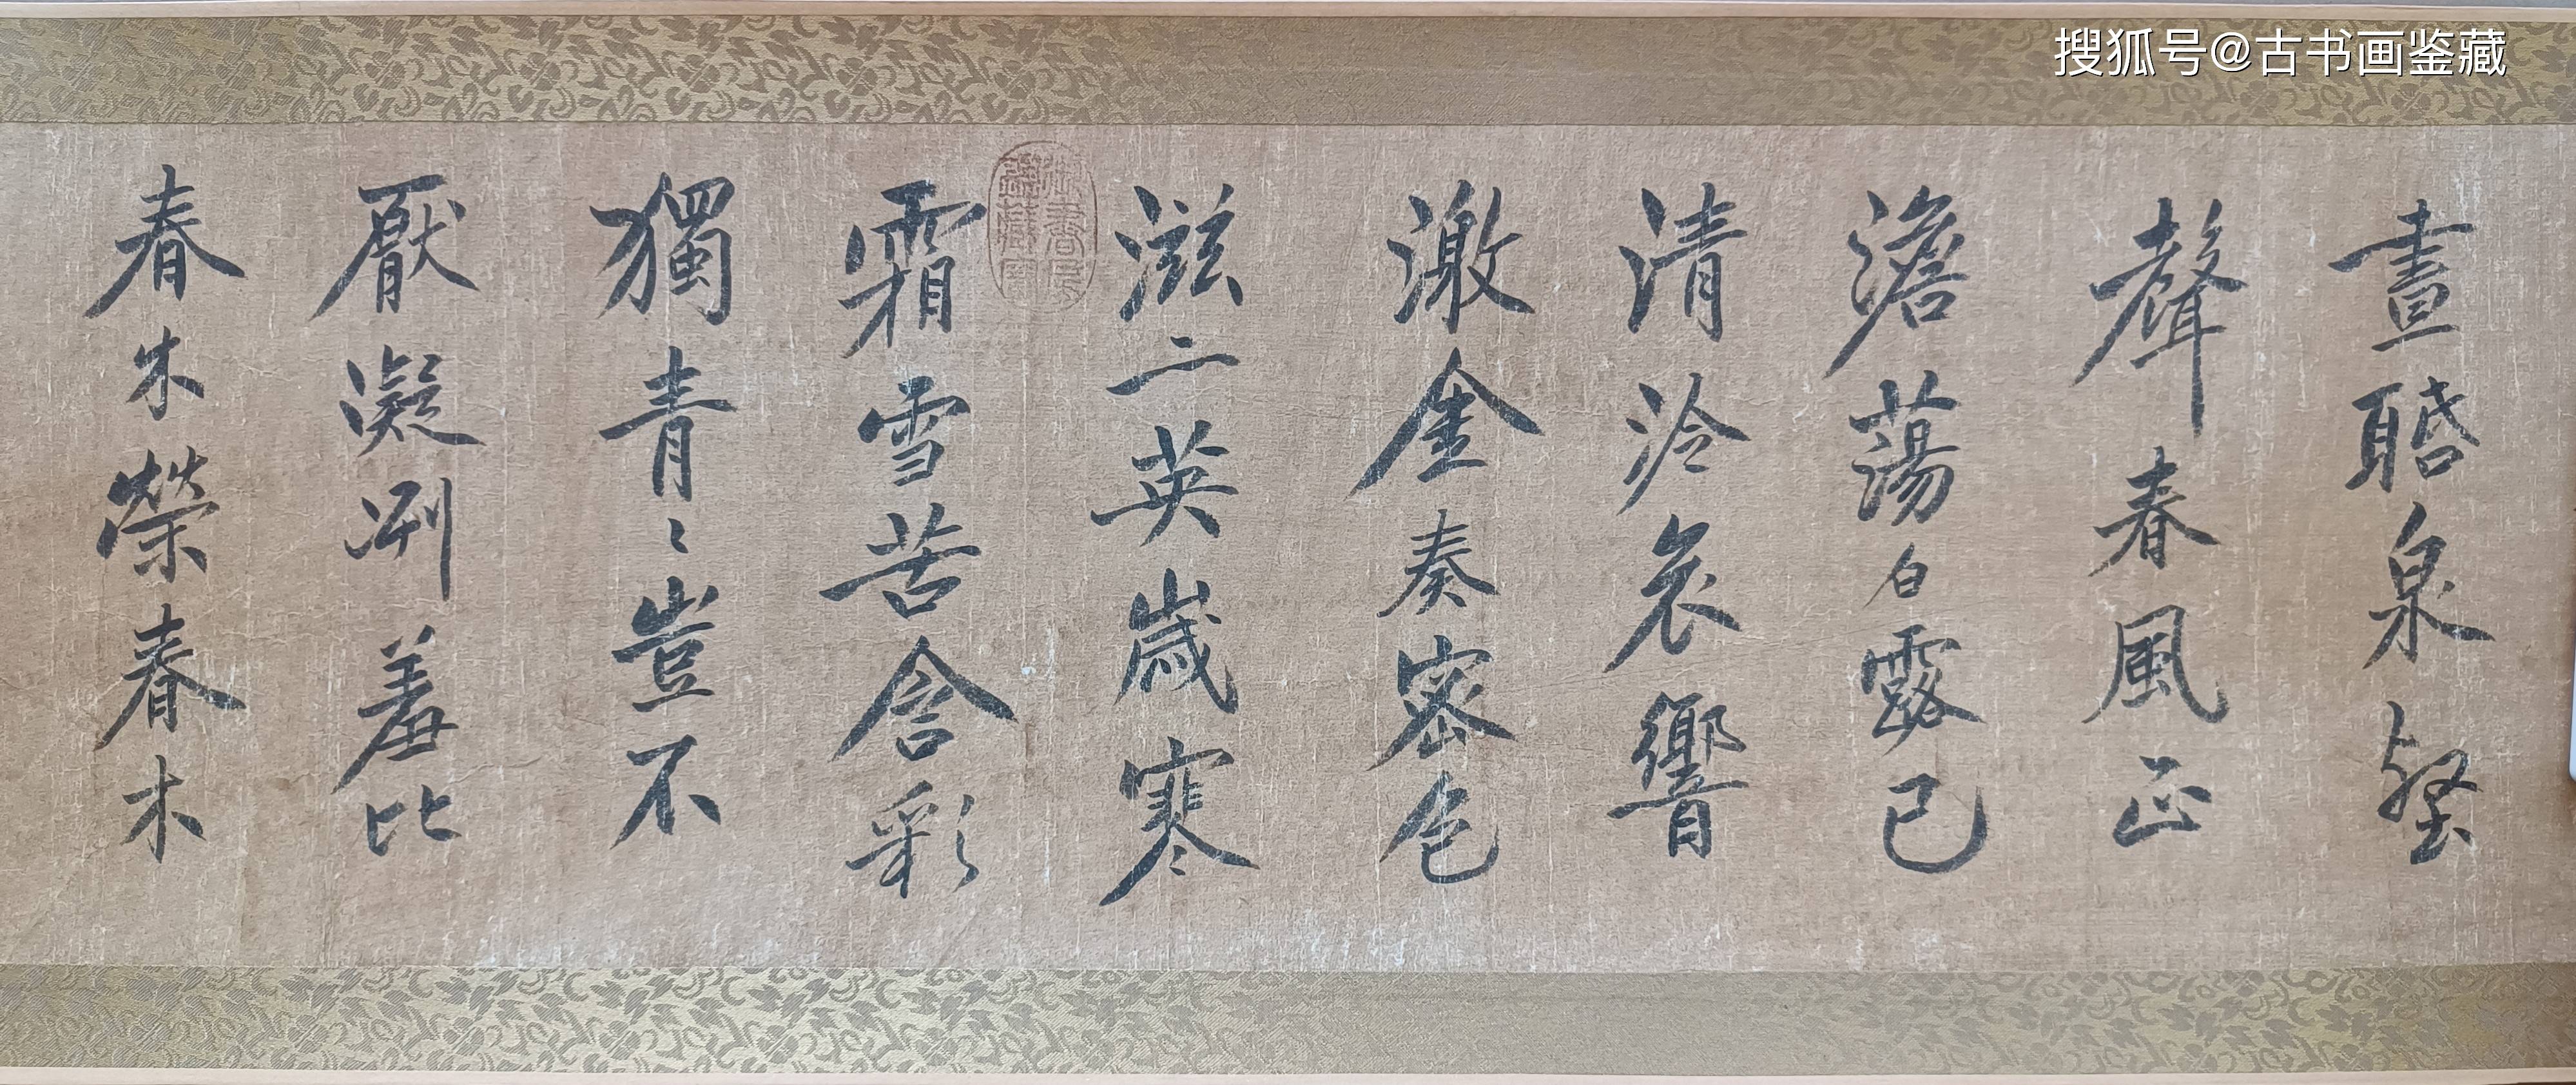 晝聒泉壑
聲春風正
澹蕩白露已
清泠哀響
激金奏密色
滋二英歲寒
霜雪苦含彩
獨青〻豈不
厭凝冽羞比
春木榮春木
御書房
鑑藏寶
搜狐号@古书画鉴藏